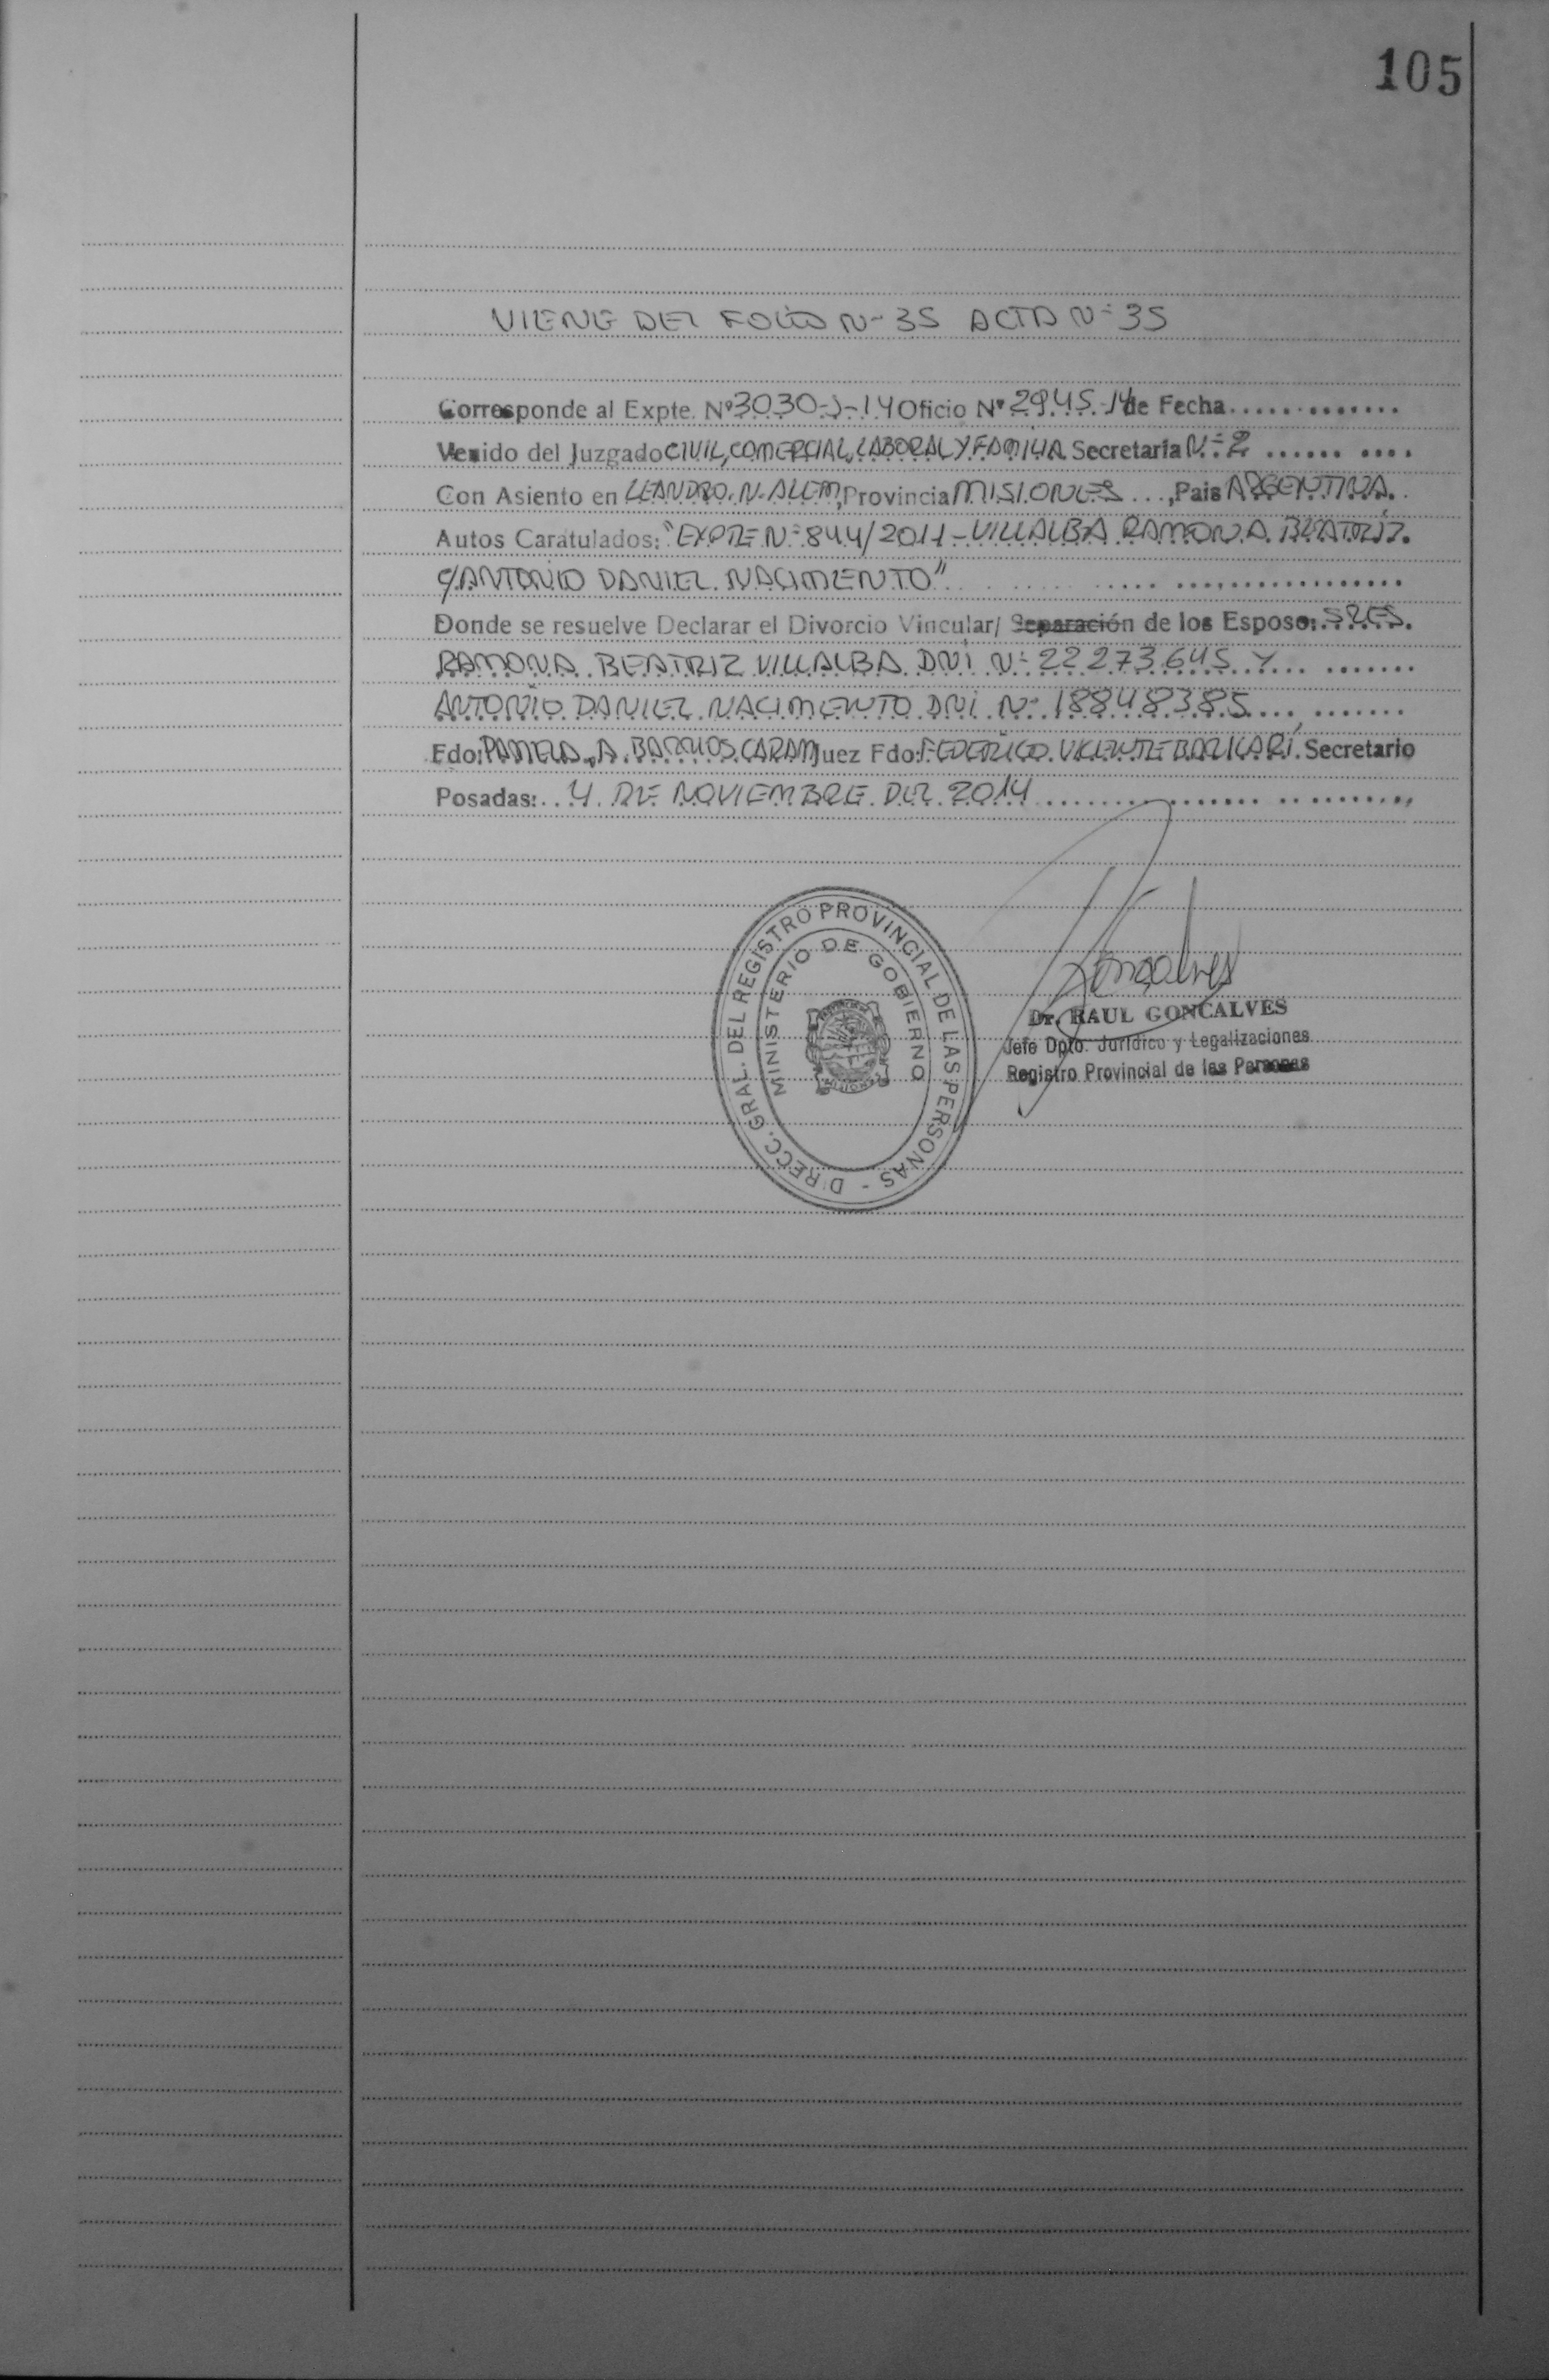 105
VIENE DEL FOLIO Nº 35 ACTA Nº 35
Corresponde al Expte. Nº 3030-J-14 Oficio Nº 2945-14 de Fecha.............
Venido del Juzgado CIVIL, COMERCIAL, LABORAL Y FAMILIA Secretaria Nº 2 ...... ....
Con Asiento en LEANDRO. N. ALEM, Provincia MISIONES ..., Pais ARGENTINA.
Autos Caratulados: "EXPTE Nº 844/2011 - VILLALBA RAMONA BEATRIZ
c/ ANTONIO DANIEL NACIMIENTO"
Donde se resuelve Declarar el Divorcio Vincular/ Separación de los Esposo: SRES.
RAMONA BEATRIZ VILLALBA DNI Nº 22273645 Y
ANTONIO DANIEL NACIMIENTO DNI Nº 18848385
Fdo: PAMELA. A. BARRIOS CARAM Juez Fdo: FEDERICO VICENTE Secretario
Posadas: 4 DE NOVIEMBRE DEL 2014
DIRECC. GRAL. DEL REGISTRO PROVINCIAL DE LAS PERSONAS -
MINISTERIO DE GOBIERNO
Goncalves
Dr. RAUL GONCALVES
Jefe Dpto. Jurídico y Legalizaciones
Registro Provincial de las Personas